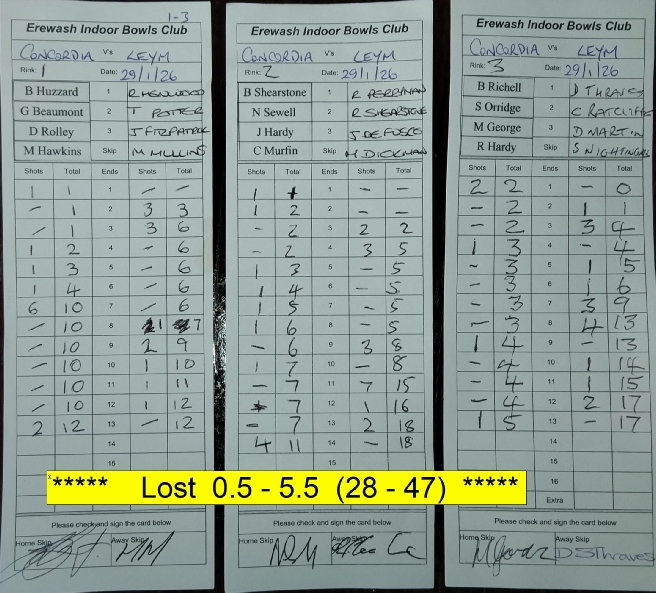 1-3
Erewash Indoor Bowls Club
CONCORDIA V's LEYM
Rink: 1 Date: 29/1/26
B Huzzard 1 R HENWOOD
G Beaumont 2 T POTTER
D Rolley 3 J FITZPATRICK
M Hawkins Skip M MULLINS
Shots Total Ends Shots Total
1 1 1 - -
- 1 2 3 3
- 1 3 3 6
1 2 4 - 6
1 3 5 - 6
1 4 6 - 6
6 10 7 - 6
- 10 8 1 7
- 10 9 2 9
- 10 10 1 10
- 10 11 1 11
- 10 12 1 12
2 12 13 - 12
14
15
Please check and sign the card below
Home Skip Away Skip
MM
Erewash Indoor Bowls Club
CONCORDIA V's LEYM
Rink: 2 Date: 29/1/26
B Shearstone 1 R PERRYMAN
N Sewell 2 R SHEARSTONE
J Hardy 3 J DE FUSCO
C Murfin Skip M DICKMAN
Shots Total Ends Shots Total
1 1 1 - -
1 2 2 - -
- 2 3 2 2
- 2 4 3 5
1 3 5 - 5
1 4 6 - 5
1 5 7 - 5
1 6 8 - 5
- 6 9 3 8
1 7 10 - 8
- 7 11 7 15
- 7 12 1 16
- 7 13 2 18
4 11 14 - 18
15
Please check and sign the card below
Home Skip Away Skip
Erewash Indoor Bowls Club
CONCORDIA V's LEYM
Rink: 3 Date: 29/1/26
B Richell 1 D THRAVES
S Orridge 2 C RATCLIFFE
M George 3 D MARTIN
R Hardy Skip S NIGHTINGALE
Shots Total Ends Shots Total
2 2 1 - 0
- 2 2 1 1
- 2 3 3 4
1 3 4 - 4
- 3 5 1 5
- 3 6 1 6
- 3 7 3 9
- 3 8 4 13
1 4 9 - 13
- 4 10 1 14
- 4 11 1 15
- 4 12 2 17
1 5 13 - 17
14
15
16
Extra
Please check and sign the card below
Home Skip Away Skip
D S Thraves
***** Lost 0.5 - 5.5 (28 - 47) *****